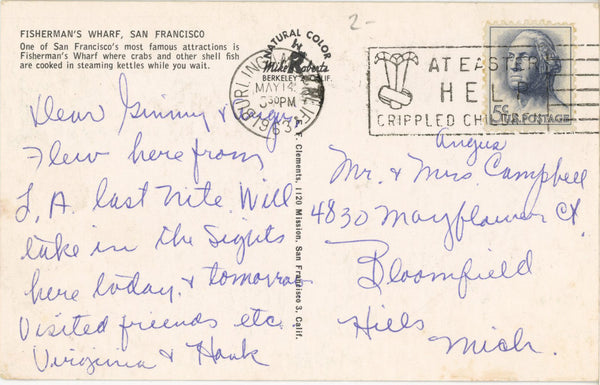 FISHERMAN'S WHARF, SAN FRANCISCO
One of San Francisco's most famous attractions is
Fisherman's Wharf where crabs and other shell fish
are cooked in steaming kettles while you wait.
2-
NATURAL COLOR
Mike Roberts
BERKELEY 2, CALIF.
BURLINGAME
CALIF.
MAY 14
3 30 PM
1963
AT EASTER
HELP
CRIPPLED CHILDREN
5¢
U.S. POSTAGE
F. Clements, 1120 Mission, San Francisco 3, Calif.
Dear Ginny & Angus,
Flew here from
L.A. last nite. Will
take in the sights
here today & tomorrow
Visited friends etc.
Virginia & Hank
Angus
Mr. & Mrs Campbell
4830 Mayflower Ct.
Bloomfield
Hills
Mich.